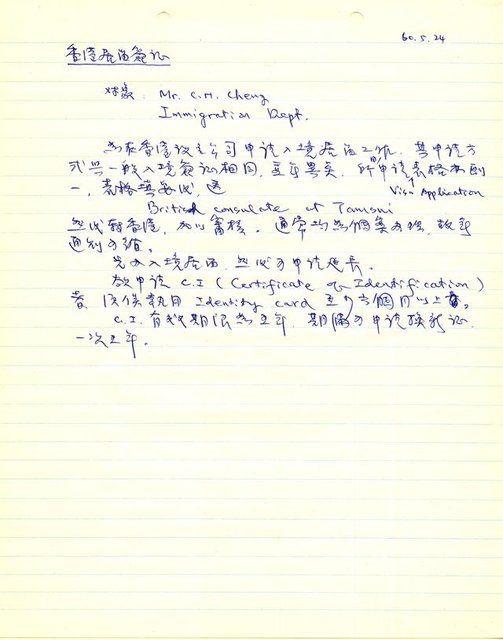 60.5.24
香港居留簽証
対象: Mr. C.M. Cheng
Immigration Dept.
為在香港設立公司申請入境居留工作, 其申請方
式與一般入境簽証相同, 並無異矣, 所用申請表格亦同
Visa Application
一, 表格填妥後, 送
British consulate at Tamsui
然後轉香港, 加以審核。通常均為個案方式, 故無
通則可循。
先入境居留, 然後可申請延長。
故申請 C.I (Certificate of Identification)
者 須 Identity card 至少六個月以上。
C.I. 有效期限為五年, 期滿可申請換新証
一次五年。